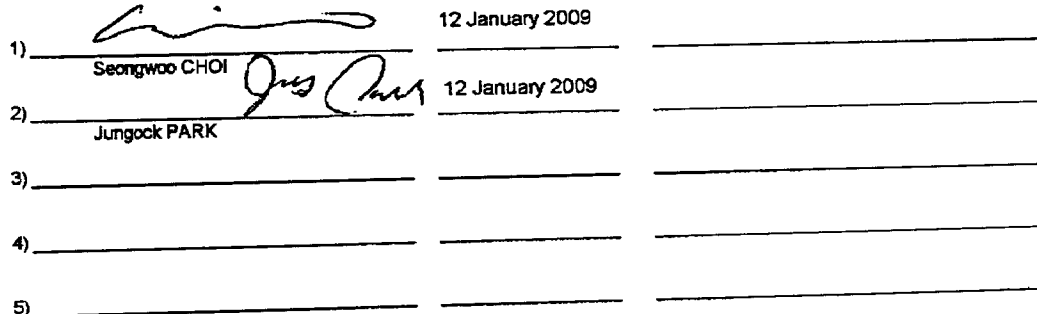 12 January 2009
1)
Seongwoo CHOI
12 January 2009
2)
Jungock PARK
3)
4)
5)